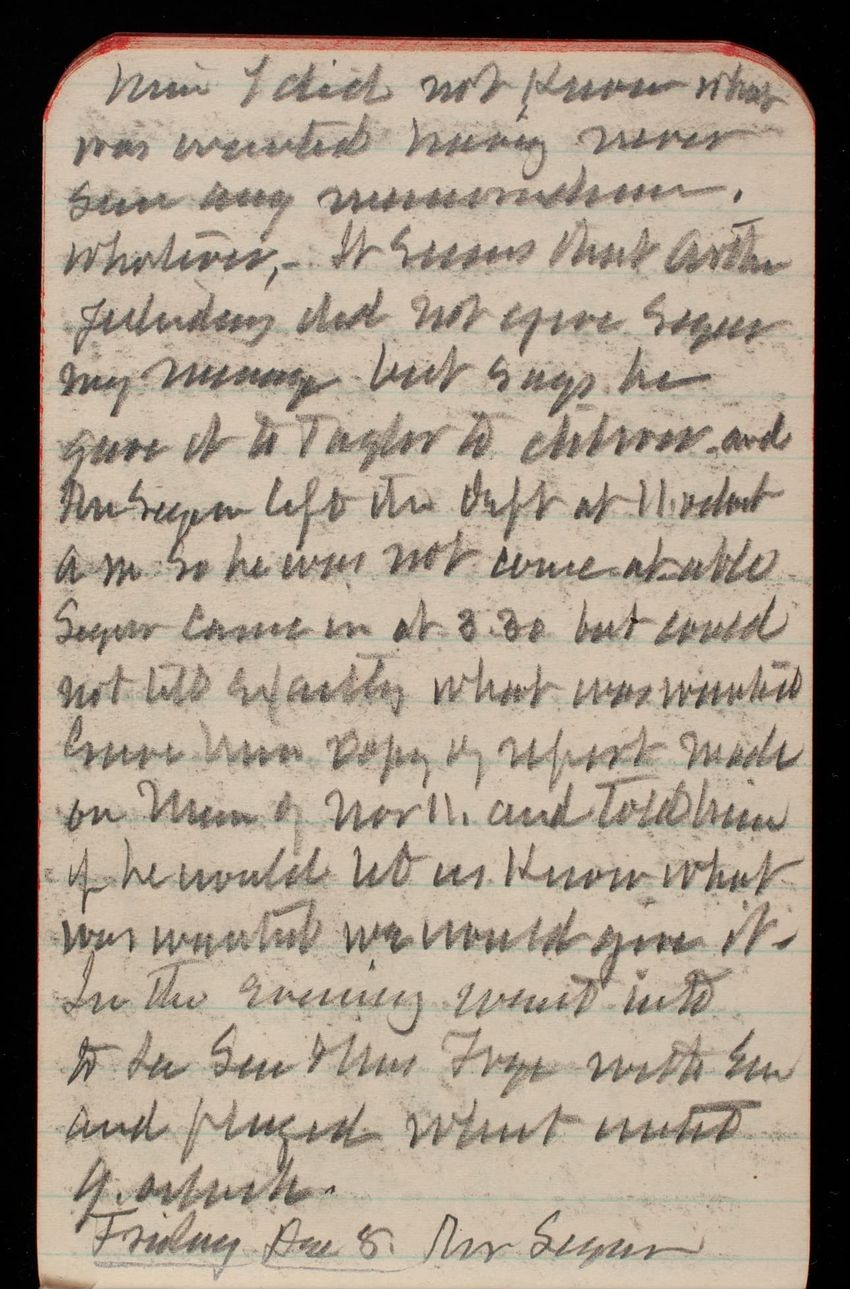 him I did not know what
was wanted having never
seen any memorandum.
whatever,- It seems that Arthur
did not give Segur
my message but says he
gave it to Taylor to deliver and
Mr Segur left the Dept at 11. oclock
a m so he was not come-at-able
Segur came in at 3.30 but could
not tell exactly what was wanted
Gave him copy of report made
on Mem of Nov 11. and told him
if he would let us know what
was wanted we would give it-
In the evening went into
to see Gen & Mrs with Em
and played whist until
9. oclock.
Friday Dec 8. Mr Segur